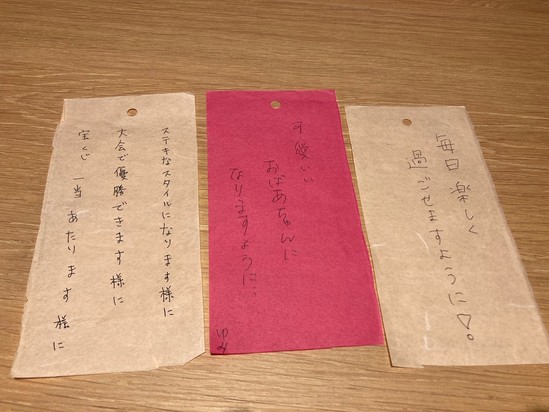 ステキなスタイルになります様に
大会で優勝できます様に
宝くじ 一当 あたります 様に
可愛い
おばあちゃんに
なりますように:
ゆみ
毎日 楽しく
過ごせますように♡。